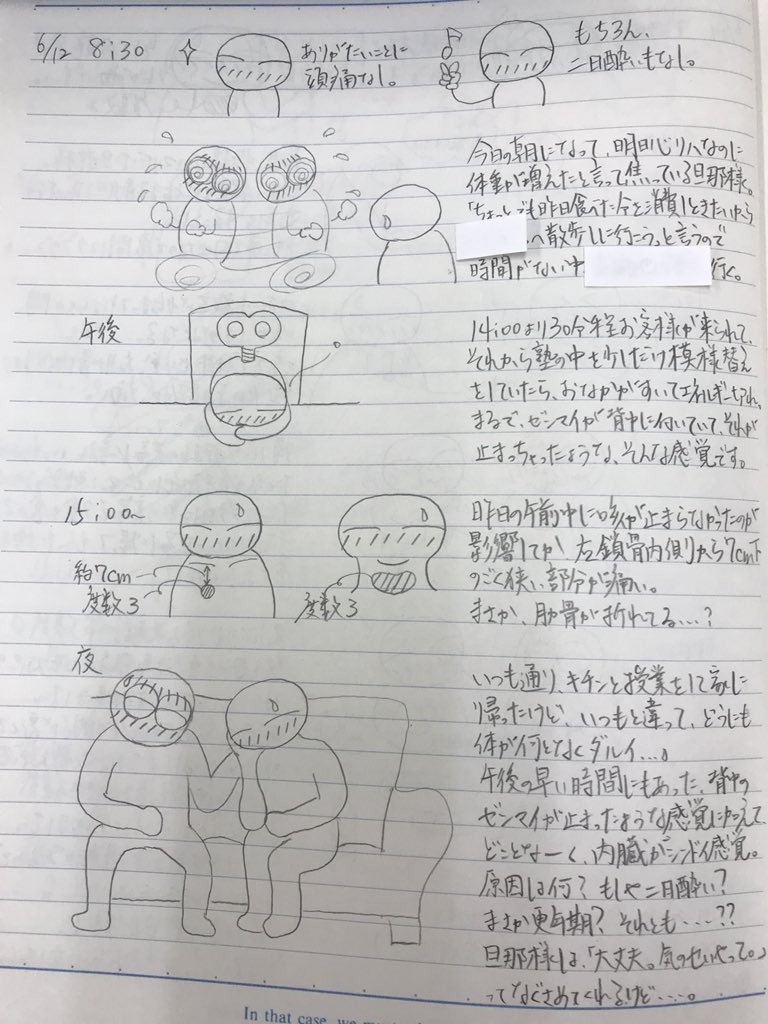 6/12 8:30
ありがたいことに
頭痛なし。
もちろん、
二日酔いもなし。
今日の朝になって、明日リハなのに
体重が増えたと言って焦っている旦那様。
「ちょっとでも昨日食べた分を消費しときたいから
へ散歩しに行こう。」と言うので
時間がない中、
行く。
午後
14:00より30分程お客様が来られて、
それから塾の中を少しだけ模様替え
をしていたら、おなかがすいてエネルギー切れ。
まるで、ゼンマイが背中に付いていて、それが
止まっちゃったような、そんな感覚です。
15:00~
約7cm
度数3
度数3
昨日の午前中に咳が止まらなかったのが
影響してか、左鎖骨内側から7cm下
のごく狭い部分が痛い。
まさか、肋骨が折れてる…?
夜
いつも通り、キチンと授業をして家に
帰ったけど、いつもと違って、どうにも
体が何となくダルイ…。
午後の早い時間にもあった、背中の
ゼンマイが止まったような感覚に加えて、
どことなーく、内臓がシンドイ感覚。
原因は何? もしや二日酔い?
まさか更年期? それとも……??
旦那様は、「大丈夫。気のせいやって。」
ってなぐさめてくれるけど……。
In that case, we